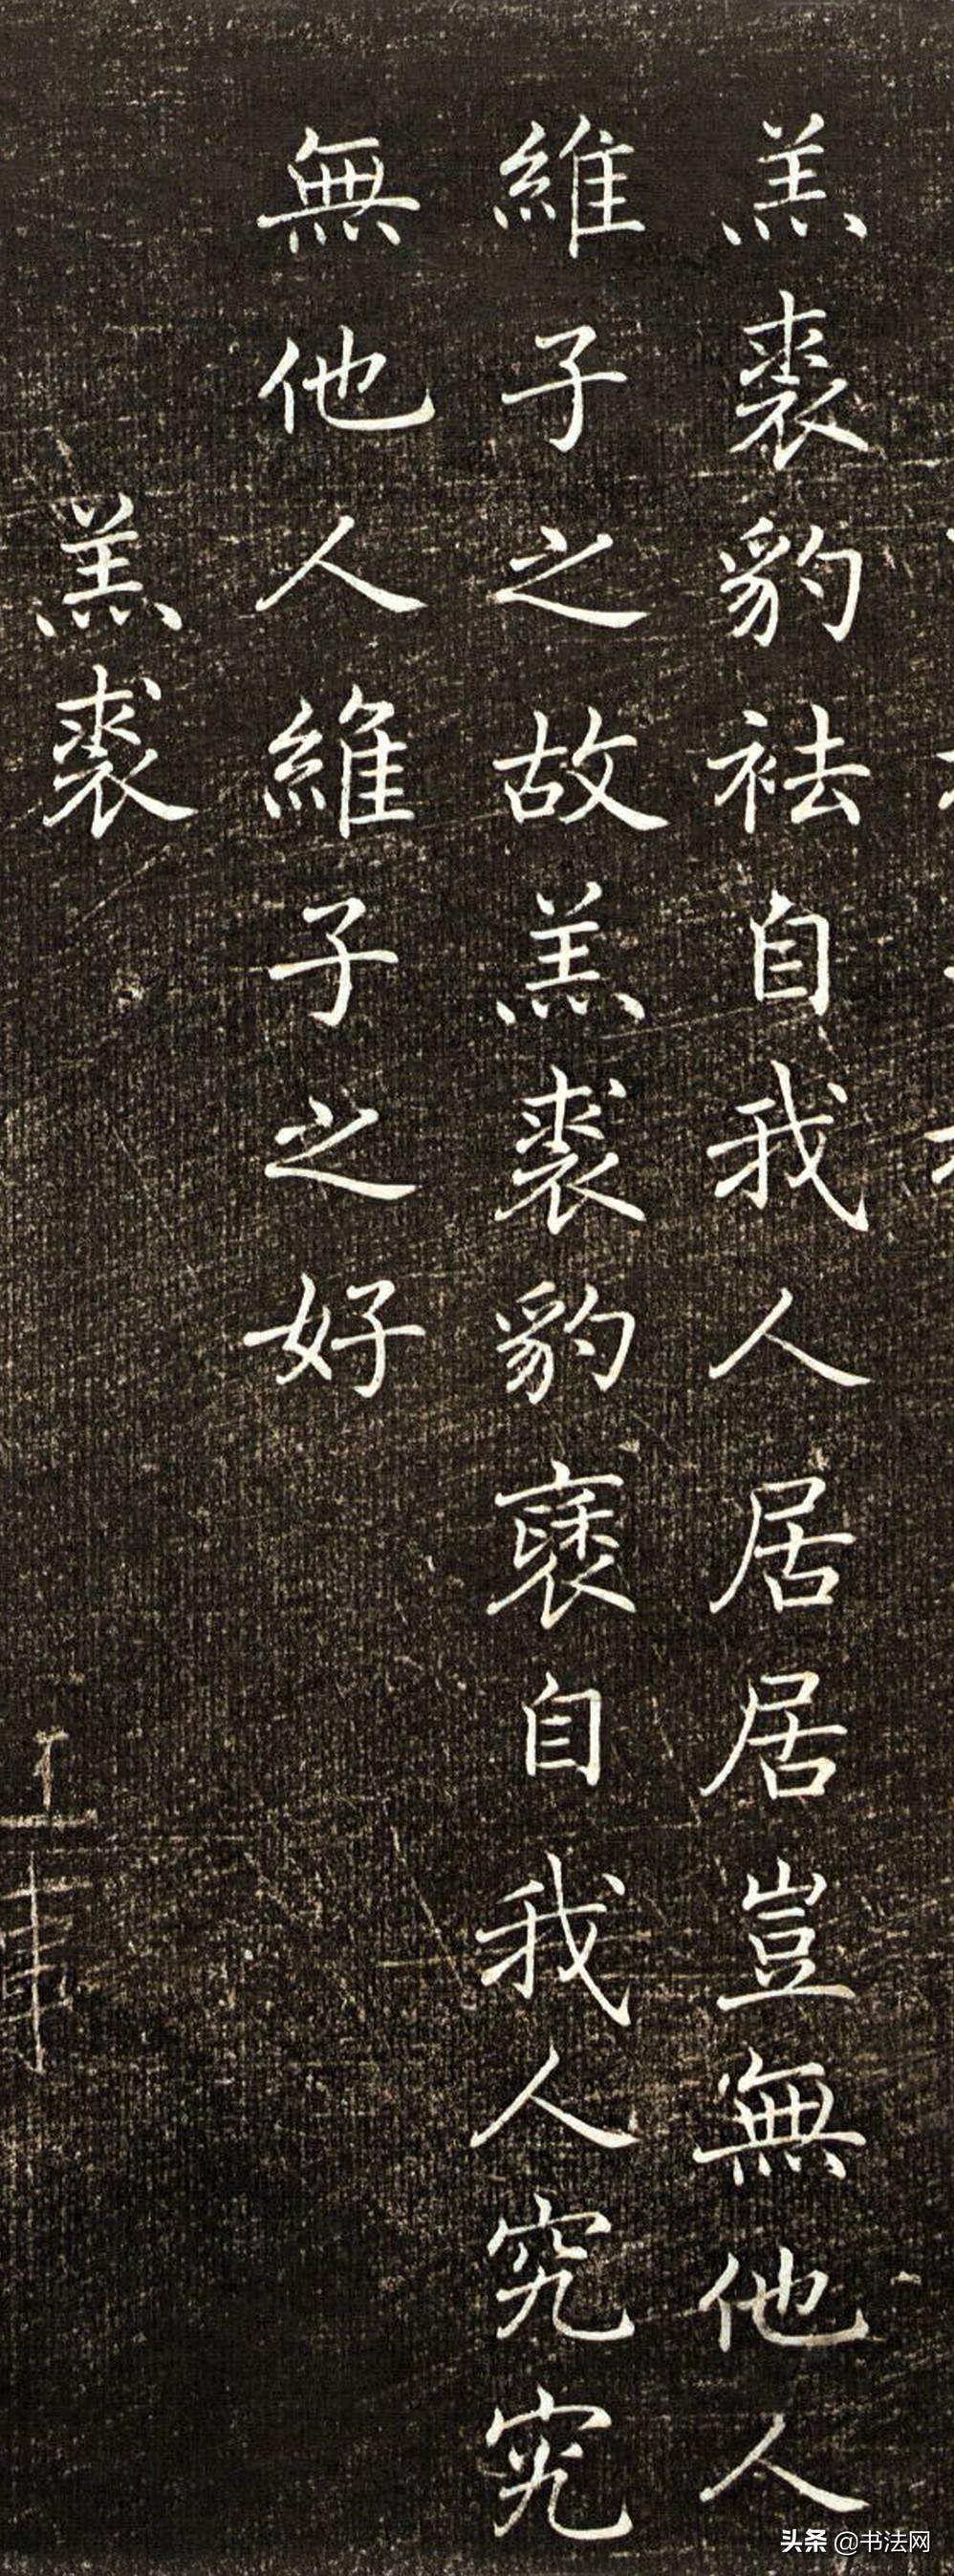 羔裘豹袪自我人居居豈無他人
維子之故羔裘豹褎自我人究究
無他人維子之好
羔裘
头条 @书法网